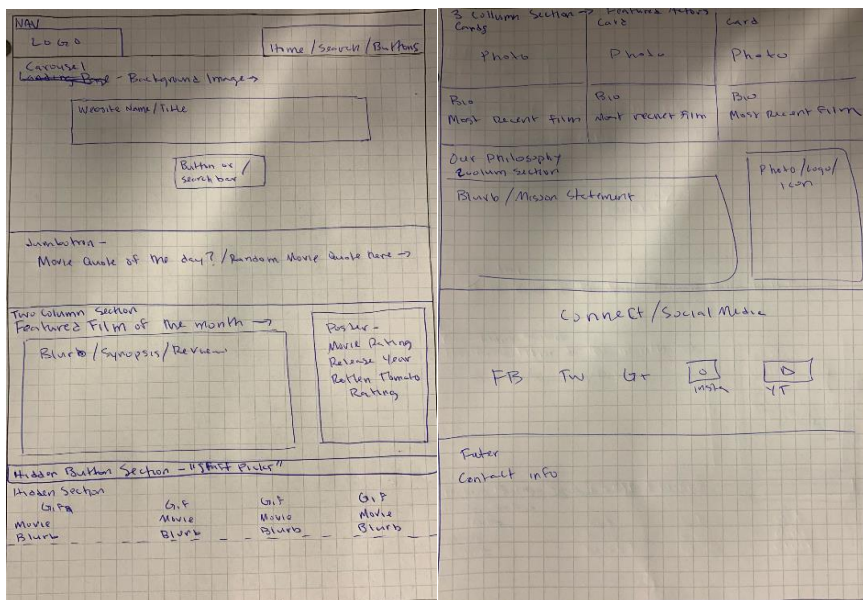 NAV
LOGO
Home/Search/Buttons
Carousel
Landing Page - Background Image→
Website Name/Title
Button or /
search bar
Jumbotron -
Movie Quote of the day? / Random Movie Quote here →
Two Column Section
Featured Film of the month →
Blurb/Synopsis/Review
Poster -
Movie Rating
Release Year
Rotten Tomato
Rating
Hidden Button Section - "Staff Picks"
Hidden Section
GIF GIF GIF GIF
Movie Movie Movie Movie
Blurb Blurb Blurb Blurb
3 Column Section → Featured Actors
Cards Card Card
Photo Photo Photo
Bio Bio Bio
Most Recent Film Most recent Film Most Recent Film
Our Philosophy
2 column section
Blurb / Mission Statement
Photo/Logo/
icon
Connect/Social Media
FB Tw G+
insta YT
Footer
Contact info